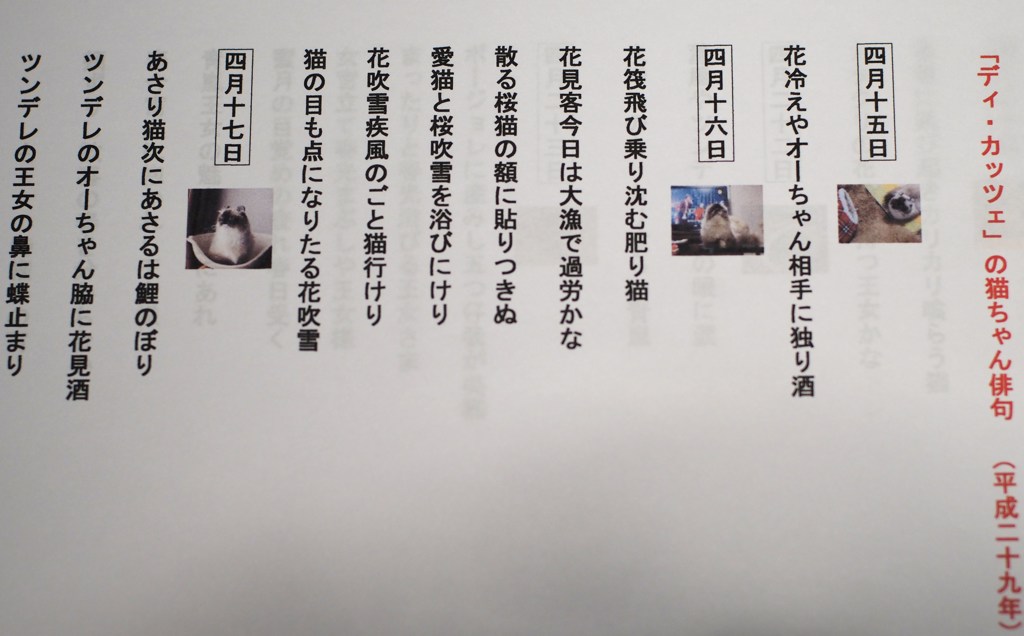 「ディ・カッツェ」の猫ちゃん俳句　（平成二十九年）
四月十五日
花冷えやオーちゃん相手に独り酒
四月十六日
花筏飛び乗り沈む肥り猫
花見客今日は大漁で過労かな
散る桜猫の額に貼りつきぬ
愛猫と桜吹雪を浴びにけり
花吹雪疾風のごと猫行けり
猫の目も点になりたる花吹雪
四月十七日
あさり猫次にあさるは鯉のぼり
ツンデレのオーちゃん脇に花見酒
ツンデレの王女の鼻に蝶止まり